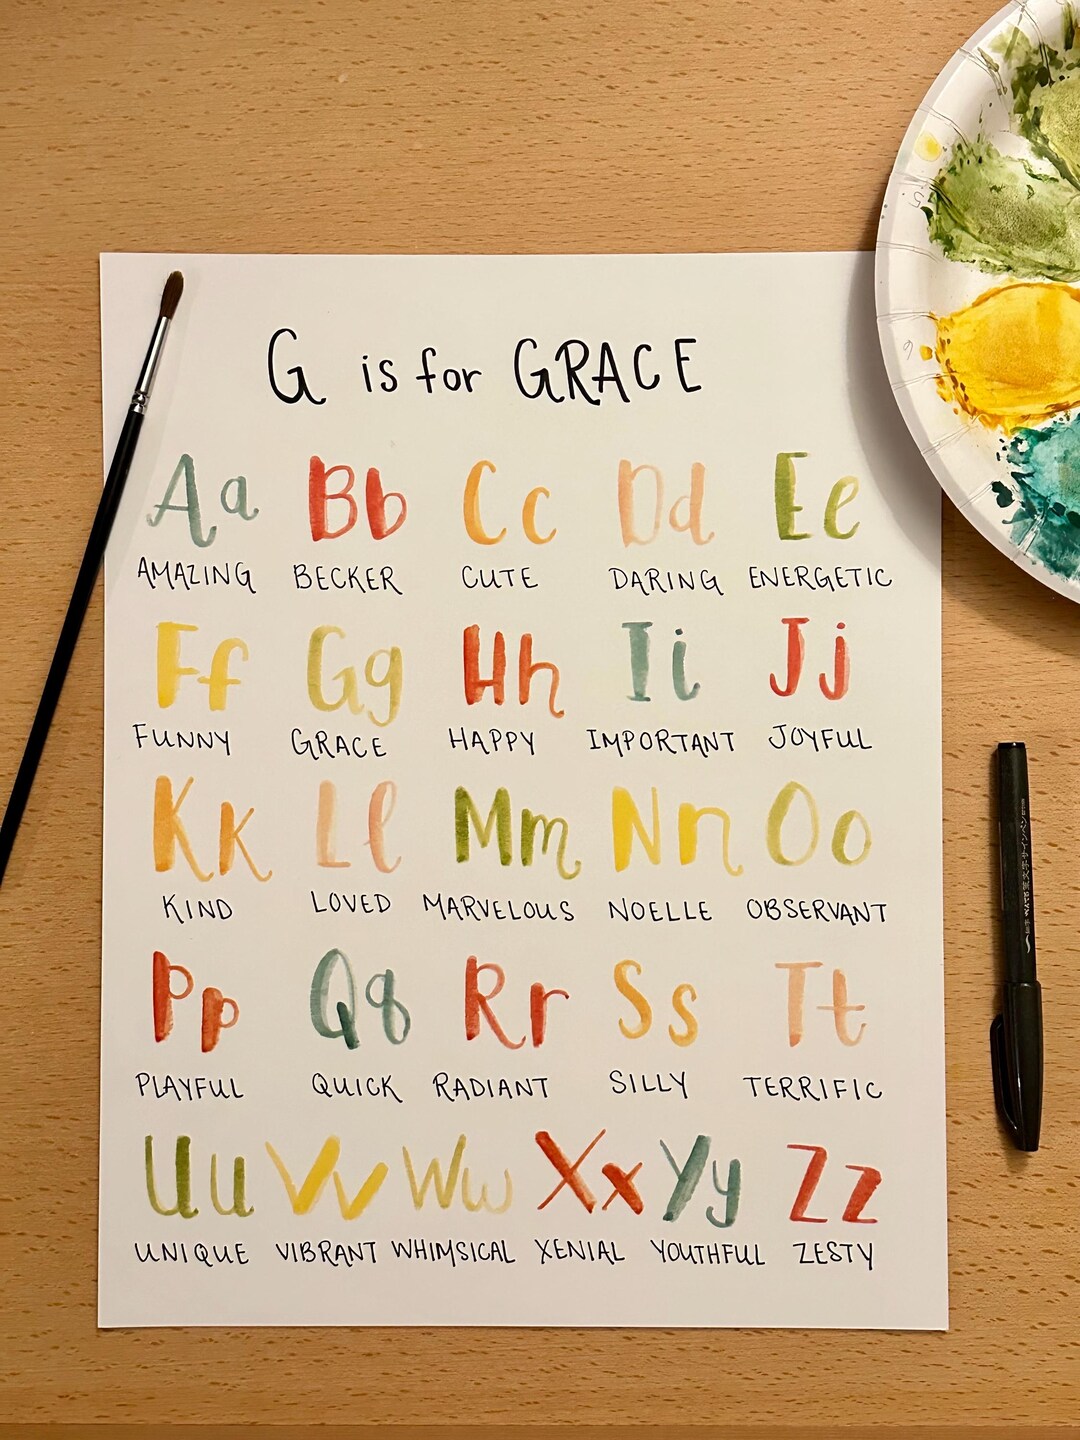 G is for GRACE
Aa Bb Cc Dd Ee
AMAZING BECKER CUTE DARING ENERGETIC
Ff Gg Hh Ii Jj
FUNNY GRACE HAPPY IMPORTANT JOYFUL
Kk Ll Mm Nn Oo
KIND LOVED MARVELOUS NOELLE OBSERVANT
Pp Qq Rr Ss Tt
PLAYFUL QUICK RADIANT SILLY TERRIFIC
Uu Vv Ww Xx Yy Zz
UNIQUE VIBRANT WHIMSICAL XENIAL YOUTHFUL ZESTY